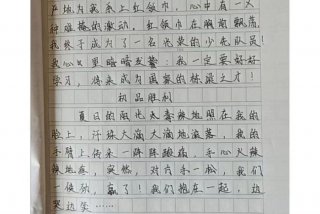 严地为我系上红领巾，心中有一又
种难掩的激动，红领巾在胸前飘荡，
我终于成为了一名光荣的少先队员！
我心里暗暗发誓：我一定要好好
学习，将来成为国家的栋梁之才！
极品胜利
夏日的阳光火毒辣地照在我的
脸上，汗珠大滴大滴地滚落，我的
手臂上传来一阵阵酸痛，手心火辣
辣地疼，突然，对方手一松，我们
一使劲，赢了！我们抱在一起，边
哭边笑……